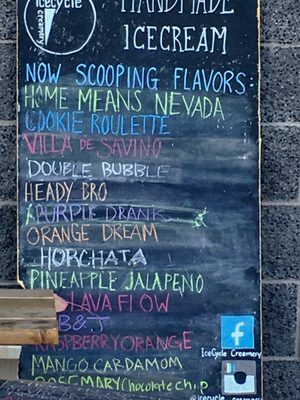 icecycle
creamery
HANDMADE
ICECREAM
NOW SCOOPING FLAVORS:
HOME MEANS NEVADA
COOKIE ROULETTE
VILLA DE SAVINO
DOUBLE BUBBLE
HEADY BRO
PURPLE DRANK
ORANGE DREAM
HORCHATA
PINEAPPLE JALAPENO
LAVA FLOW
B&J
RASPBERRY ORANGE
MANGO CARDAMOM
ROSEMARY Chocolate chip
f
IceCycle Creamery
@icecycle_creamery